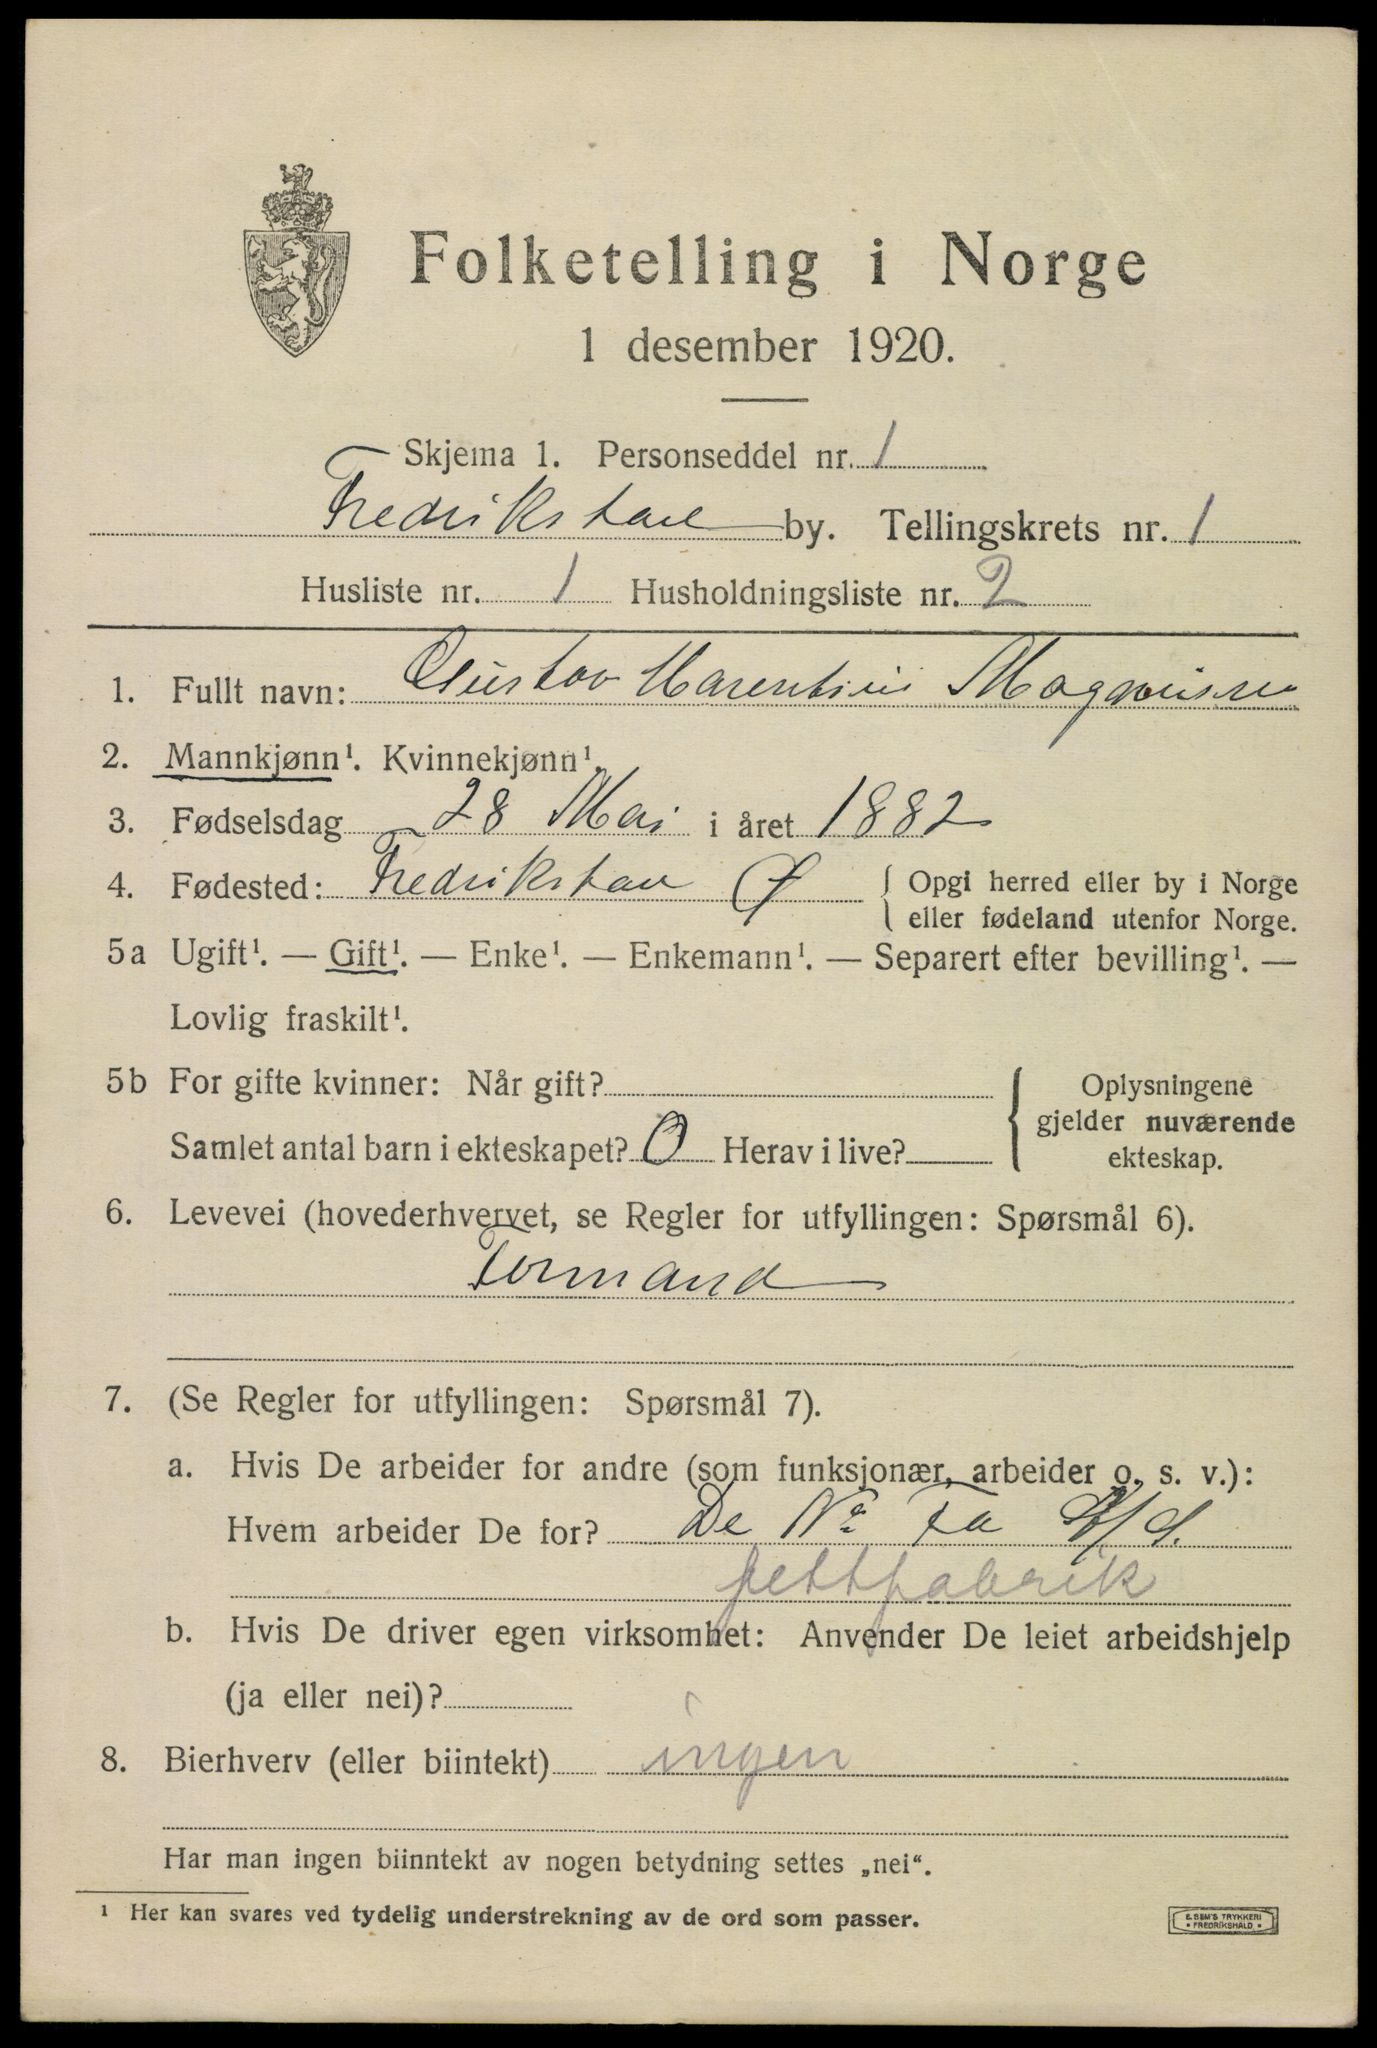 Folketelling i Norge
1 desember 1920.
Skjema 1. Personseddel nr. 1
Fredrikstad by. Tellingskrets nr. 1
Husliste nr. 1 Husholdningsliste nr. 2
1. Fullt navn: Gustav Marentius Magnussen
2. Mannkjønn¹. Kvinnekjønn¹.
3. Fødselsdag 28 Mai i året 1882
4. Fødested: Fredrikstad Ø { Opgi herred eller by i Norge
eller fødeland utenfor Norge.
5a Ugift¹. — Gift¹. — Enke¹. — Enkemann¹. — Separert efter bevilling¹. —
Lovlig fraskilt¹.
5b For gifte kvinner: Når gift? { Oplysningene
gjelder nuværende
Samlet antal barn i ekteskapet? 0 Herav i live? ekteskap.
6. Levevei (hovederhvervet, se Regler for utfyllingen: Spørsmål 6).
Formand
7. (Se Regler for utfyllingen: Spørsmål 7).
a. Hvis De arbeider for andre (som funksjonær, arbeider o. s. v.):
Hvem arbeider De for? De No Fa A/S.
fettfabrik
b. Hvis De driver egen virksomhet: Anvender De leiet arbeidshjelp
(ja eller nei)?
8. Bierhverv (eller biintekt) ingen
Har man ingen biinntekt av nogen betydning settes „nei“.
¹ Her kan svares ved tydelig understrekning av de ord som passer.
E. SEM'S TRYKKERI
• FREDRIKSHALD •